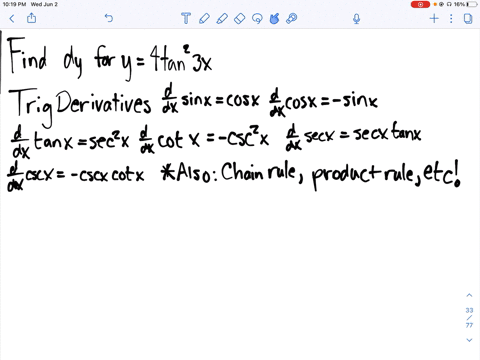 10:19 PM Wed Jun 2
16%
Find dy for y = 4tan² 3x
Trig Derivatives d/dx sinx = cosx d/dx cosx = -sinx
d/dx tanx = sec²x d/dx cot x = -csc²x d/dx secx = secx tanx
d/dx cscx = -cscx cotx *Also: Chain rule, product rule, etc!
33
/
77